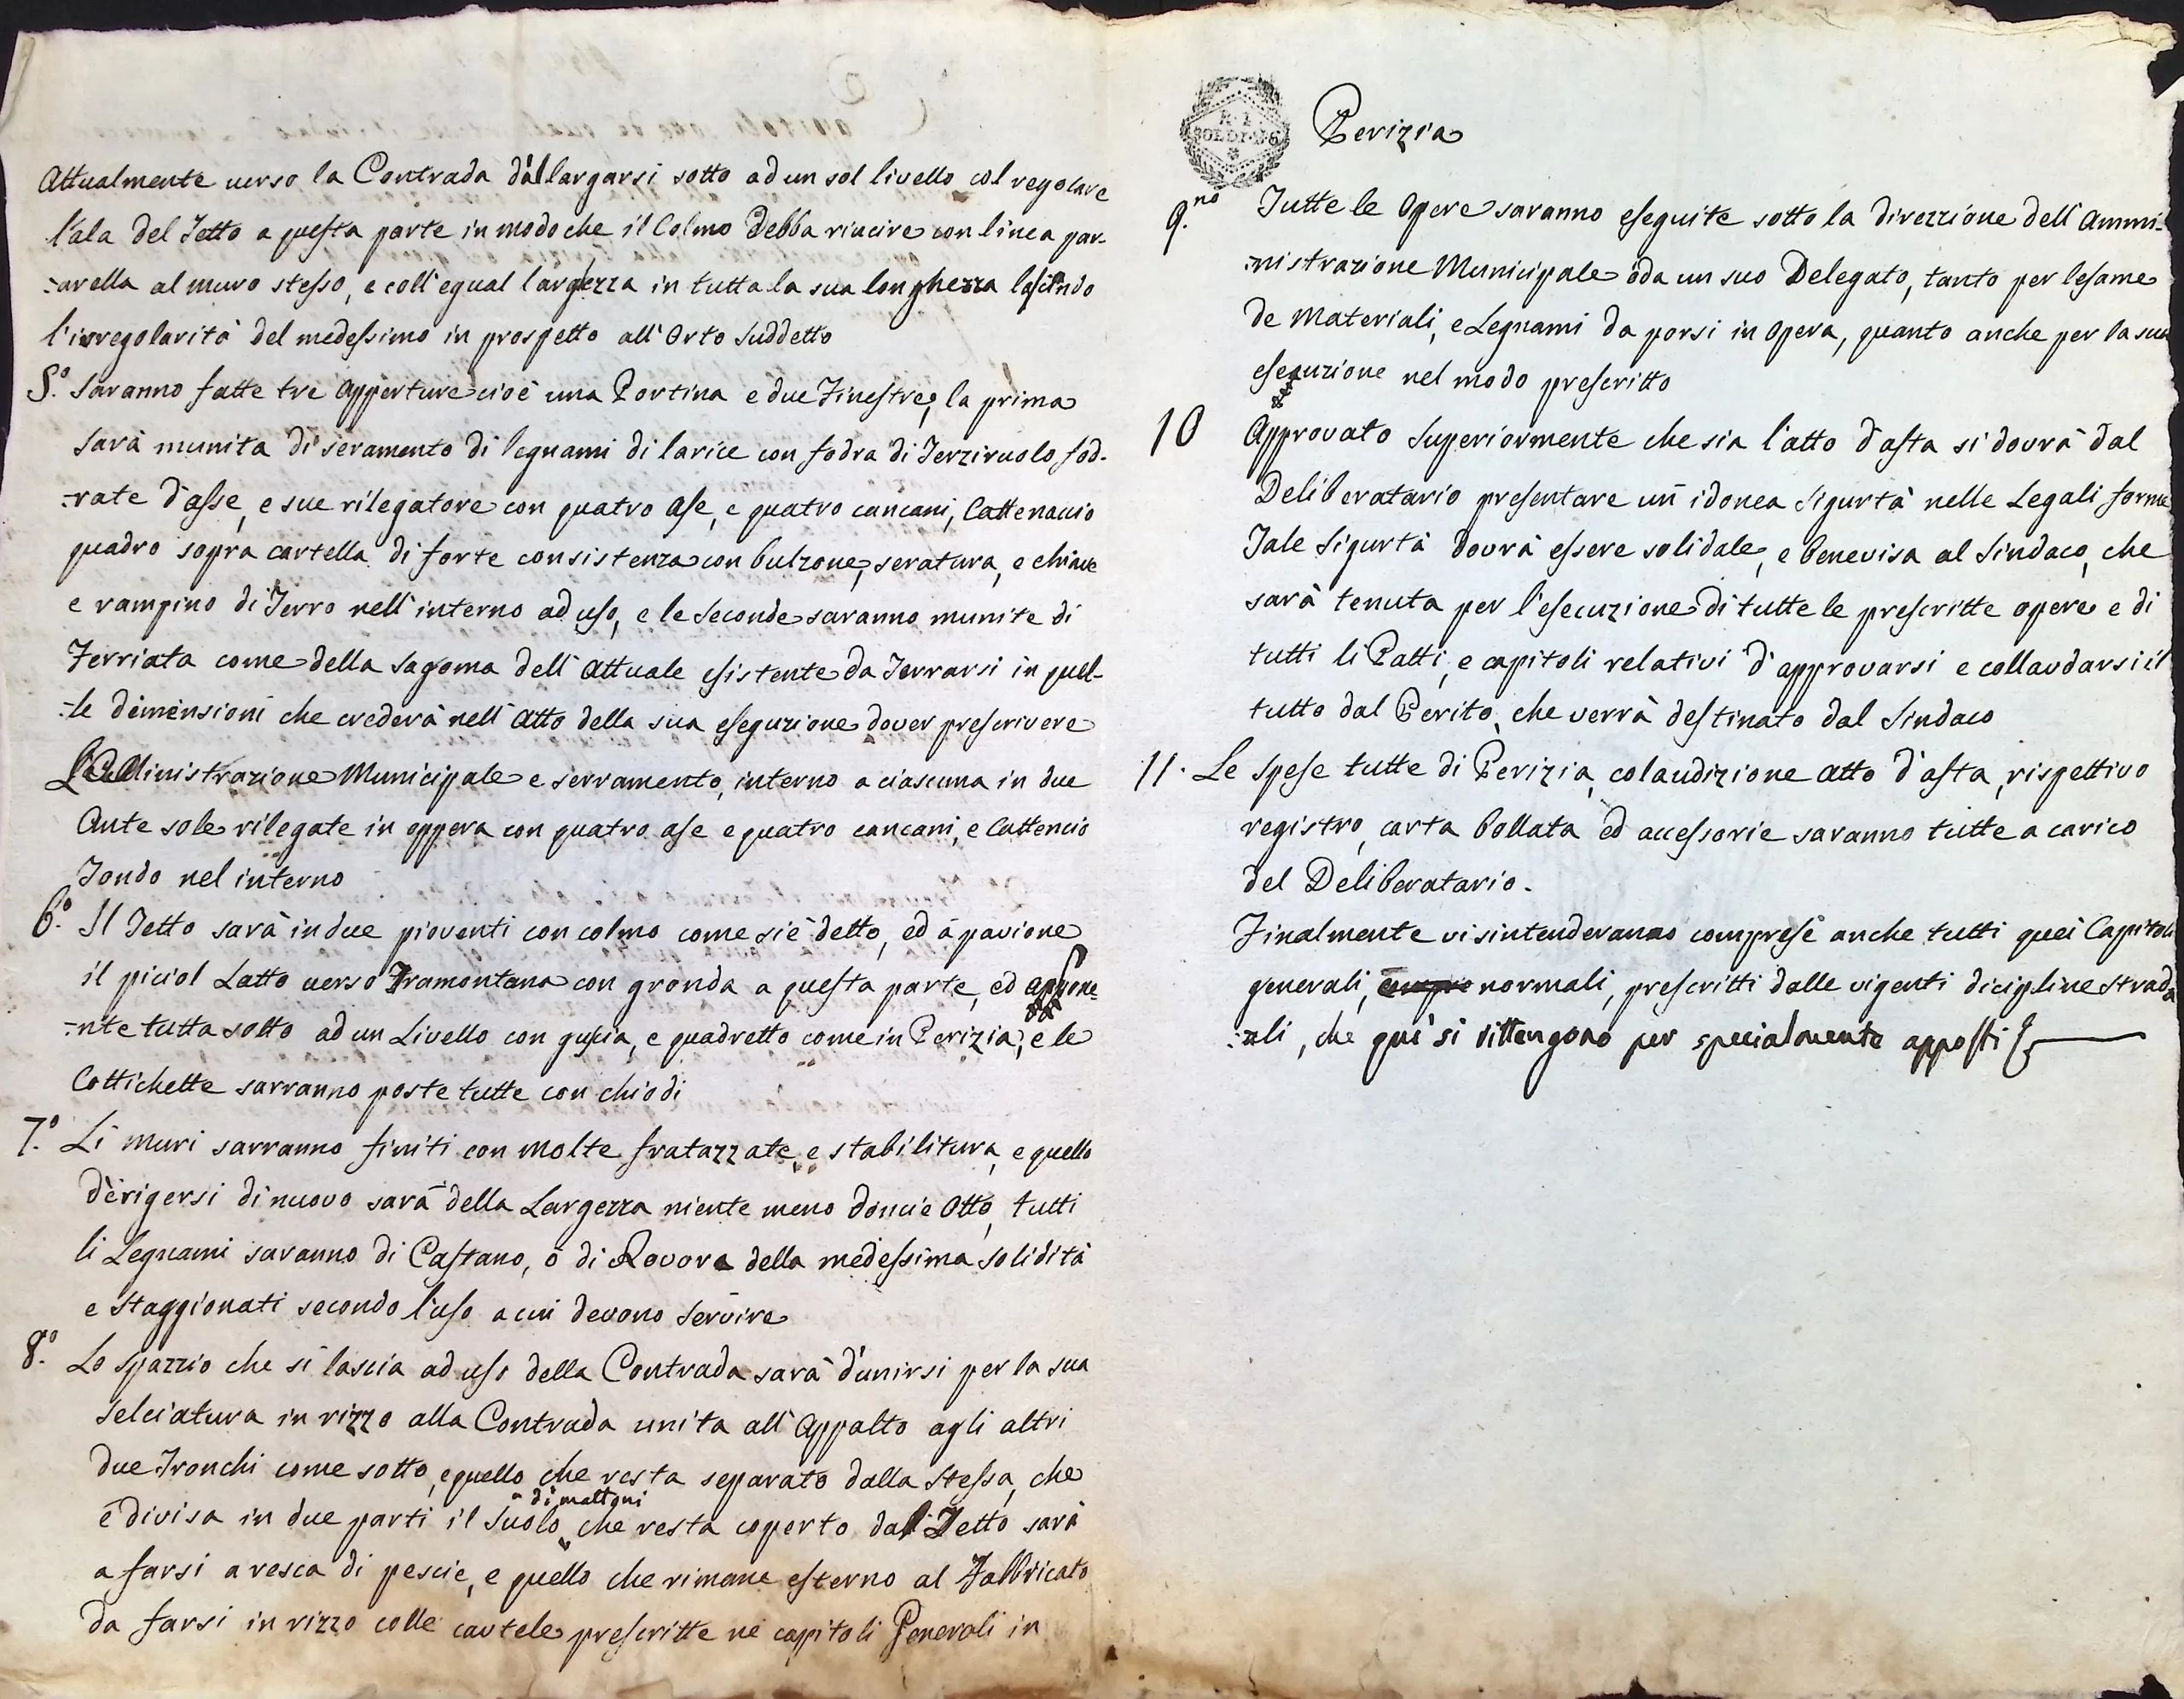 Attualmente verso la Contrada d'allargarsi sotto ad un sol livello col regolare
l'ala del Tetto a questa parte in modo che il Colmo debba riucire con linea par-
-arella al muro stesso, e coll'egual largezza in tutta la sua longhezza lasciando
l'irregolarità del medessimo in prospetto all'Orto Suddetto
5.º Saranno fatte tre Apperture cioè una Portina e due Finestre, la prima
sarà munita di seramento di legnami di larice con fodra di Terziruolo fod-
-rate d'asse, e sue rilegatore con quatro ase, e quatro cancani, Cattenacio
quadro sopra cartella di forte consistenza con bulzone, seratura, e chiave
e rampino di Ferro nell'interno ad uso, e le Seconde saranno munite di
Ferriata come della sagoma dell'Attuale esistente da Ferrarsi in quel-
-le dimensioni che crederà nell'Atto della sua esequzione dover prescrivere
Ministrazione Municipale e serramento, interno a ciascuna in due
Ante sole rilegate in oppera con quatro ase e quatro cancani, e Cattencio
Tondo nel interno
6.º Il Tetto sarà in due pioventi con colmo come si è detto, ed à pavione
il piciol Latto verso Tramontana con gronda a questa parte, ed
-nte tutta sotto ad un Livello con guscia, e quadretto come in Perizia, e le
Cottichette sarranno poste tutte con chiodi
7.º Li muri sarranno finiti con Molte fratazzate, e stabilitura, e quello
d'erigersi di nuovo sarà della Largezza niente meno d'oncie Otto, tutti
li Legnami saranno di Castano, ò di Rovore della medessima solidità
e Staggionati secondo l'uso a cui devono Servire
8.º Lo spazzio che si lascia ad uso della Contrada sarà d'unirsi per la sua
Selciatura in rizzo alla Contrada unita all'Appalto agli altri
due Tronchi come sotto, e quello che resta separato dalla Stessa, che
è divisa in due parti il Suolo di mattoni che resta coperto dal Tetto sarà
a farsi a resca di pescie, e quello che rimane esterno al Fabbricato
da farsi in rizzo colle cautele prescritte ne capitoli Generali in
R. I.
SOLDI 36
Perizia
9.no Tutte le Opere saranno eseguite sotto la direzzione dell'Ammi-
-nistrazione Municipale ò da un suo Delegato, tanto per l'esame
de Materiali, e Legnami da porsi in Opera, quanto anche per la sua
esecuzione nel modo prescritto
10 Approvato Superiormente che sia l'atto d'asta si dovrà dal
Deliberatario presentare un idonea Sigurtà nelle Legali forme
Tale Sigurtà dovrà essere solidale, e benevisa al Sindaco, che
sarà tenuta per l'esecuzione di tutte le prescritte opere e di
tutti li Patti, e capitoli relativi d'approvarsi e collaudarsi il
tutto dal Perito, che verrà destinato dal Sindaco
11. Le spese tutte di Perizia, colaudizione Atto d'asta, rispettivo
registro, carta bollata ed accessorie saranno tutte a carico
del Deliberatario.
Finalmente visintenderanno comprese anche tutti quei Capitoli
generali, normali, prescritti dalle vigenti dicipline strada
-ali, che qui si rittengono per specialmente apposti